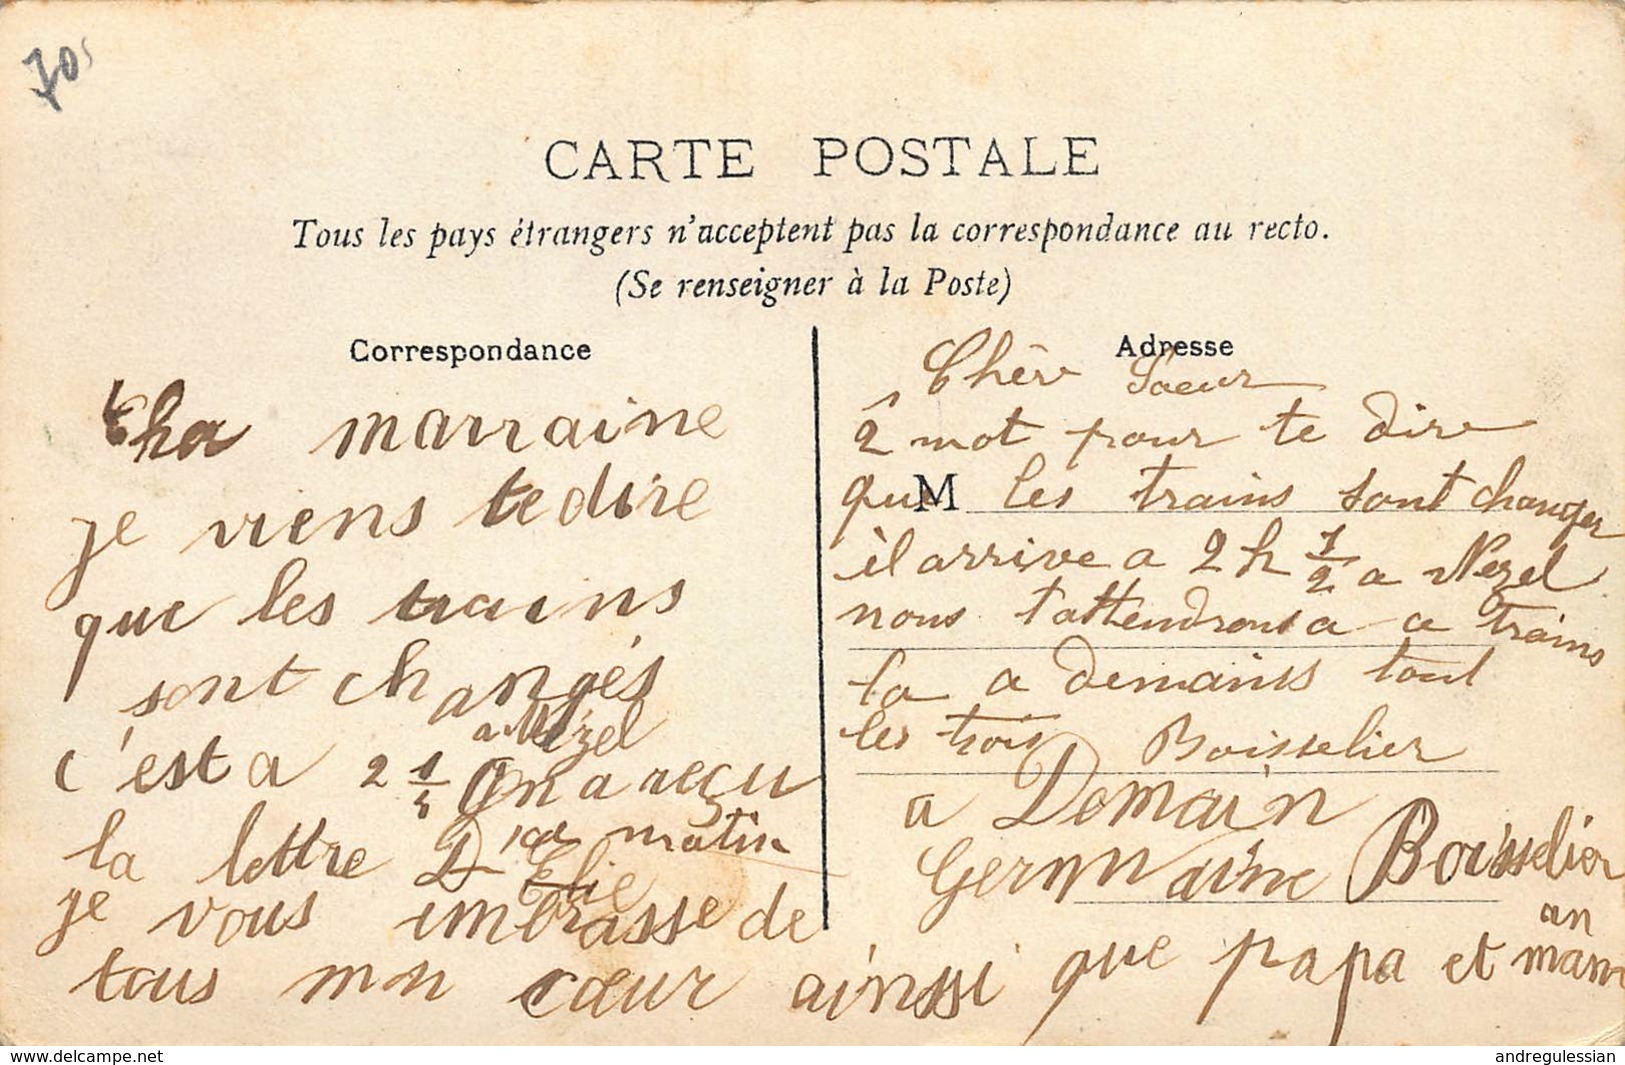 70s
CARTE POSTALE
Tous les pays étrangers n'acceptent pas la correspondance au recto.
(Se renseigner à la Poste)
Correspondance
Cha marraine
je viens te dire
que les trains
sont changés
a Mézel
c'est a 2 1/2 On a reçu
la lettre D'Elie ca matin
je vous embrasse de
tous mon cœur ainssi que papa et maman
Adresse
Chère Soeur
2 mot pour te dire
que M les trains sont changer
il arrive a 2 h 1/2 a Mezel
nous t'attendrons a a trains
la a demains tout
les trois Boisselier
a Demain
Germaine Boisselier
www.delcampe.net
andregulessian